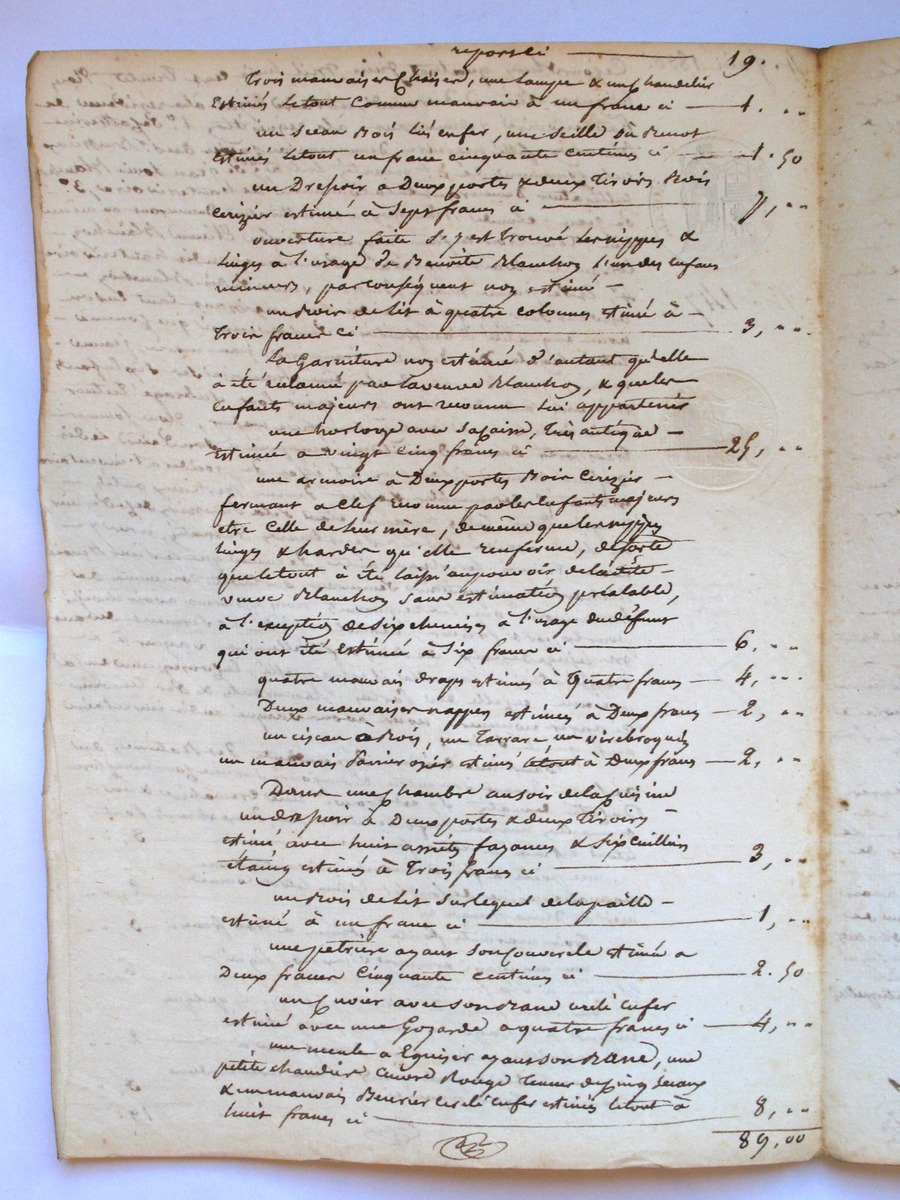 report ci — 19. ..
Trois mauvaises Chaises, une lampe & un chandelier
Estimés le tout comme mauvais à un franc ci — 1. ..
un sceau Bois lié en fer, une seille du Benot
Estimés letout un franc cinquante centimes ci — 1. 50
un Dressoir a Deux portes & deux Tiroirs Bois
cerizier estimé à Sept francs ci — 7, ..
ouverture faite S'y est trouvé les nippes &
Linges à l'usage de Benoite Blanchon l'un des enfans
mineurs, par conséquent non estimé —
un Bois de lit à quatre colonnes estimé à —
trois francs ci — 3, ..
La Garniture non estimée d'autant qu'elle
à été réclamé par la veuve Blanchon, & que les
enfants majeurs ont reconnu lui appartenir
une horloge avec sa caisse, très antique —
Estimée a vingt cinq francs ci — 25, ..
une armoire à Deux portes Bois Cerizier —
fermant a clef reconnue par les Enfants majeurs
etre Celle de leur mère, de même que les nippes
Linges & hardes qu'elle renferme, de sorte
que letout à été laissé au pouvoir de la dite —
veuve Blanchon sans estimation préalable,
à l'exception de Six chemises à l'usage du défunt
qui ont été Estimée à Six francs ci — 6, ..
quatre mauvais draps estimés à Quatre francs — 4, ..
Deux mauvaises nappes estimés à Deux francs — 2, ..
un ciseau à Bois, un Tarrare un virebroquin
un mauvais Panier ozier estimé letout à Deux francs — 2, ..
Dans une Chambre au soir de la Cuisine
un dressoir à Deux portes & deux Tiroirs —
estimé avec huit assiètes fayances & Six cuilliers
étaing estimés à Trois francs ci — 3, ..
un Bois de lit sur lequel de la paille —
estimé à un franc ci — 1, ..
une pétrière ayant son couvercle estimée a
Deux francs Cinquante centimes ci — 2. 50
un Cuvier avec son Banc cerclé en fer
estimé avec une Goyarde a quatre francs ci — 4, ..
une meule a Eguiser ayant son Banc, une
petite chaudière Cuivre Rouge teneur de cinq Seaux
& un mauvais Beurrier cerclé en fer estimés letout à
huit francs ci — 8, ..
89,00